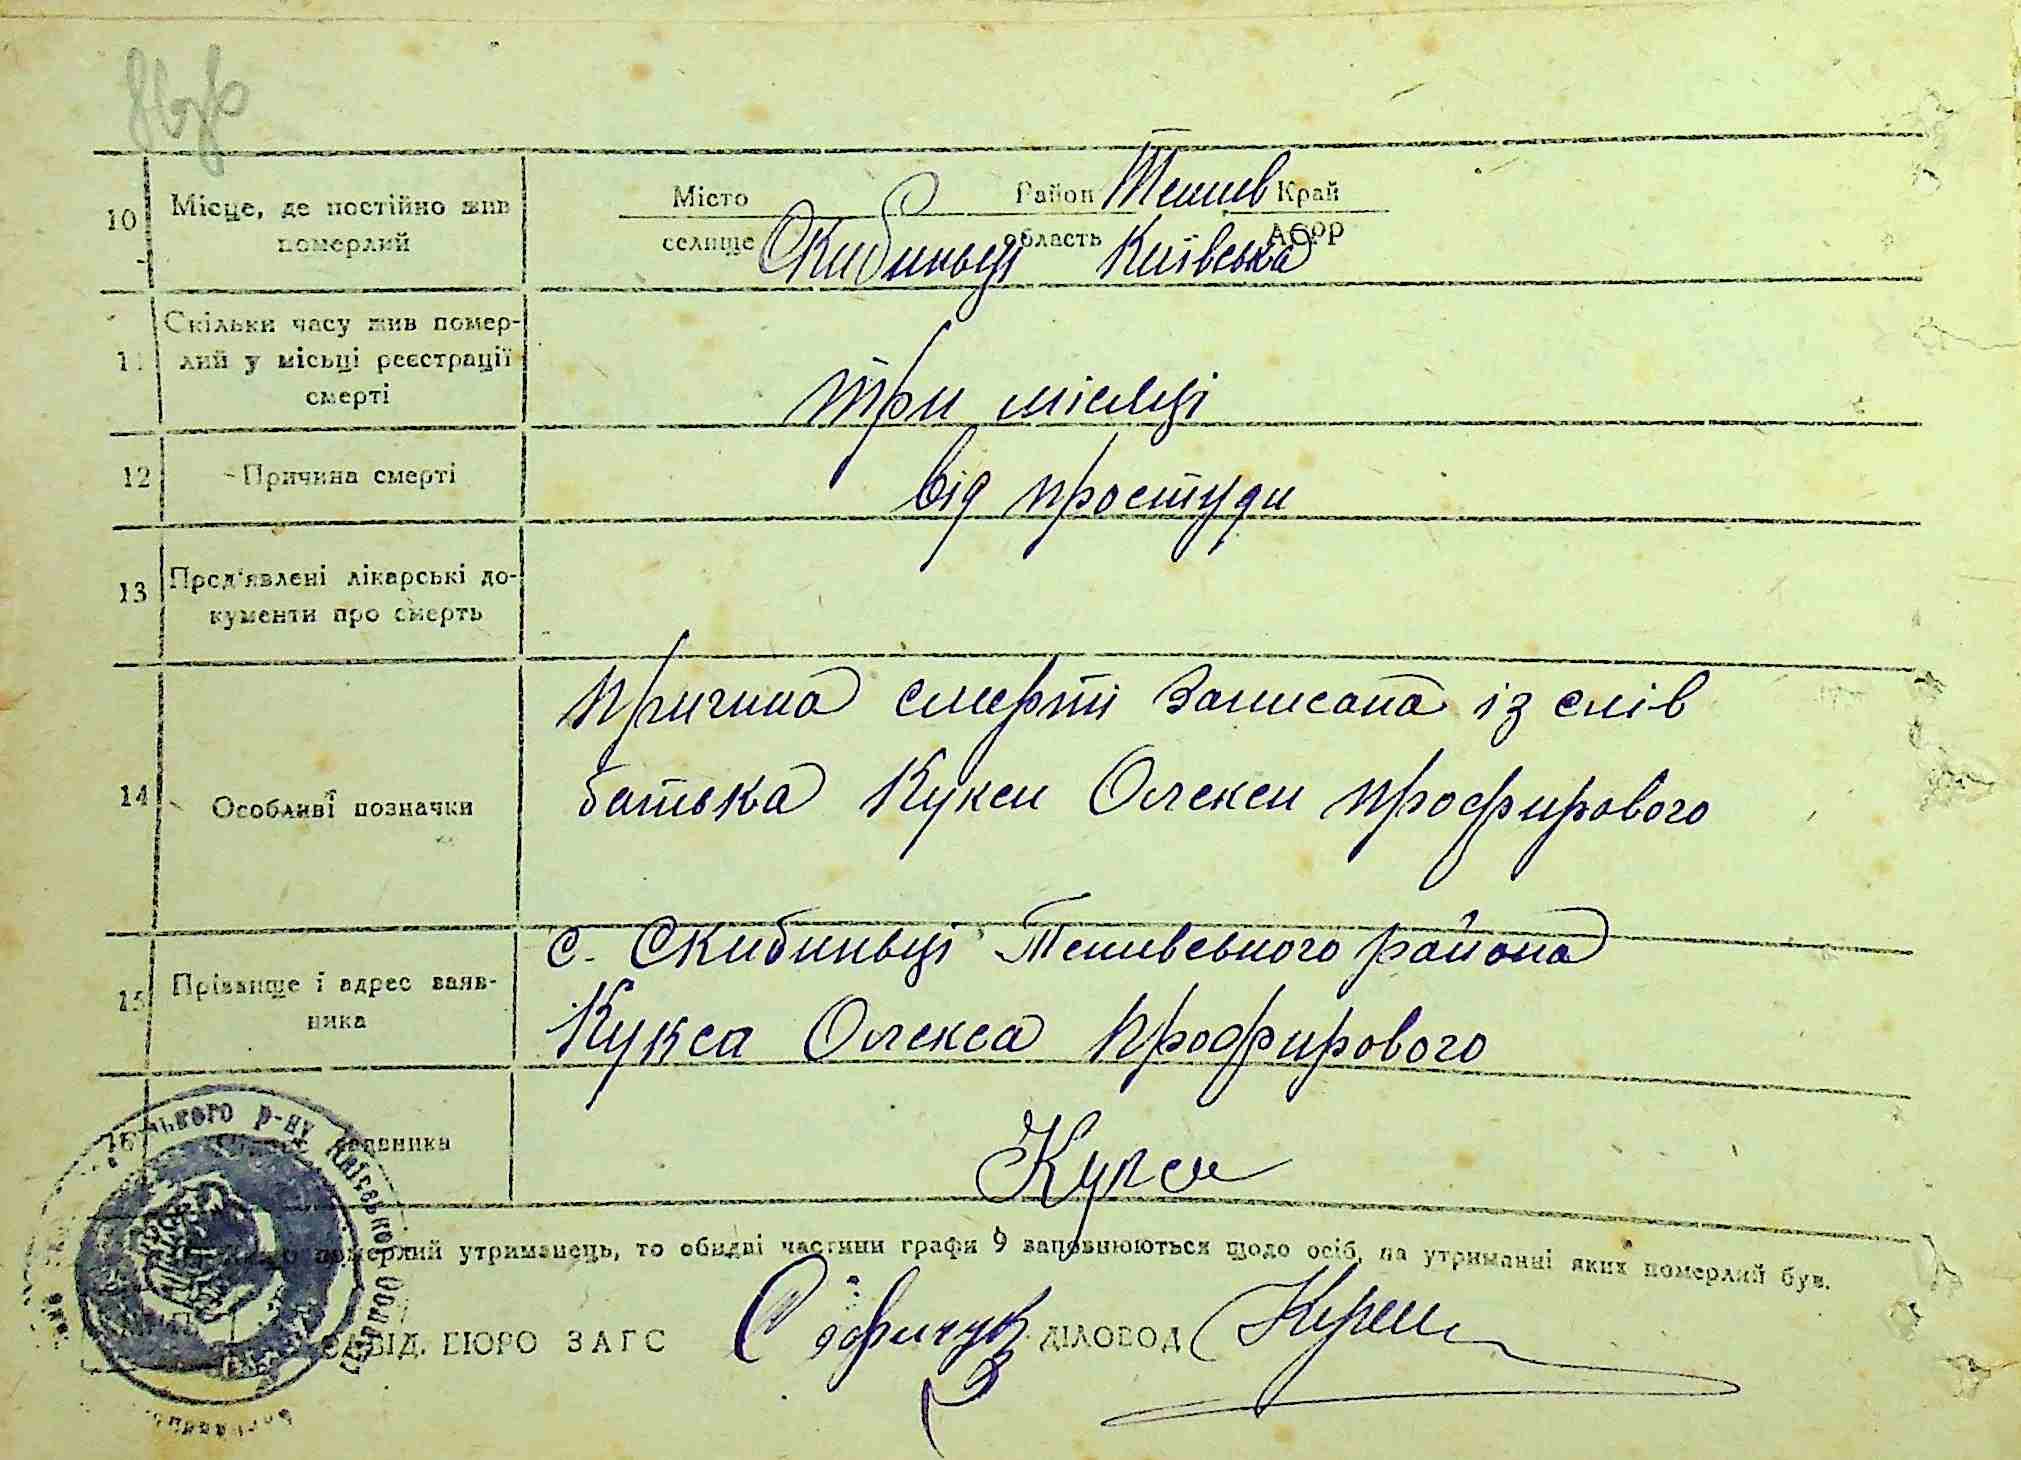 10 Місце, де постійно жив
померлий
Місто Район Тетиев Край
селище Скибиньці область Київська АСРР
11 Скільки часу жив помер-
лий у місьці реєстрації
смерті
три місяці
12 Причина смерті
від простуди
13 Пред'явлені лікарські до-
кументи про смерть
14 Особливі позначки
причина смерті записана із слів
батька Кукси Олекси профирового
15 Прізвище і адрес заяв-
ника
с. Скибиньці Тетивського района
Кукса Олекса профирового
16 заявника
Кукса
померлий утриманець, то обидві частини графи 9 заповнюються щодо осіб, на утриманні яких померлий був.
ЗАВІД. БЮРО ЗАГС ДІЛОВОД
р-ну Київської Області